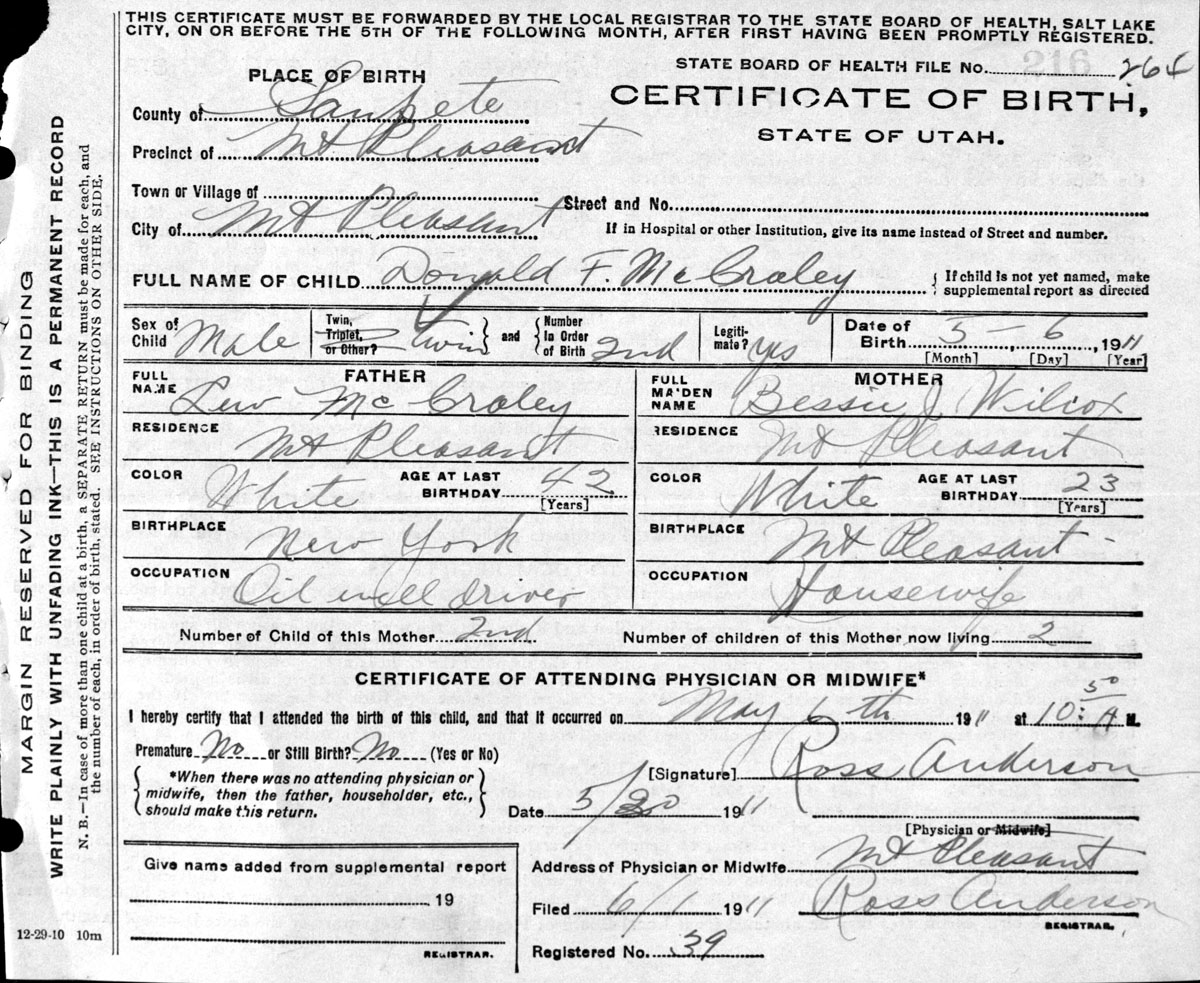 THIS CERTIFICATE MUST BE FORWARDED BY THE LOCAL REGISTRAR TO THE STATE BOARD OF HEALTH, SALT LAKE
CITY, ON OR BEFORE THE 5TH OF THE FOLLOWING MONTH, AFTER FIRST HAVING BEEN PROMPTLY REGISTERED.
MARGIN RESERVED FOR BINDING
WRITE PLAINLY WITH UNFADING INK—THIS IS A PERMANENT RECORD
N. B.—In case of more than one child at a birth, a SEPARATE RETURN must be made for each, and
the number of each, in order of birth, stated. SEE INSTRUCTIONS ON OTHER SIDE.
216
STATE BOARD OF HEALTH FILE No. 264
CERTIFICATE OF BIRTH,
STATE OF UTAH.
PLACE OF BIRTH
County of Sanpete
Precinct of Mt Pleasant
Town or Village of Street and No.
City of Mt Pleasant If in Hospital or other Institution, give its name instead of Street and number.
FULL NAME OF CHILD Donald F. McCraley { If child is not yet named, make
supplemental report as directed
Sex of Child Male Twin, Triplet, or Other? twin } and { Number In Order of Birth 2nd Legitimate? yes Date of Birth 5 - 6, 1911
[Month] [Day] [Year]
FATHER MOTHER
FULL NAME Lew McCraley FULL MAIDEN NAME Bessie J Wilcox
RESIDENCE Mt Pleasant RESIDENCE Mt Pleasant
COLOR White AGE AT LAST BIRTHDAY 42 [Years] COLOR White AGE AT LAST BIRTHDAY 23 [Years]
BIRTHPLACE New York BIRTHPLACE Mt Pleasant
OCCUPATION Oil well driver OCCUPATION Housewife
Number of Child of this Mother 2nd Number of children of this Mother now living 2
CERTIFICATE OF ATTENDING PHYSICIAN OR MIDWIFE*
I hereby certify that I attended the birth of this child, and that it occurred on May 6th 1911 at 10:50 A M.
Premature No or Still Birth? No (Yes or No)
{ *When there was no attending physician or
midwife, then the father, householder, etc.,
should make this return. }
[Signature] Ross Anderson
Date 5/30 1911
[Physician or Midwife]
Give name added from supplemental report
19
REGISTRAR.
Address of Physician or Midwife Mt Pleasant
Filed 6/1 1911 Ross Anderson
REGISTRAR.
Registered No. 39
12-29-10 10m